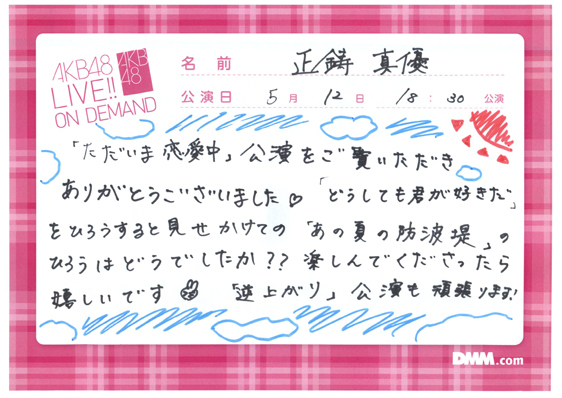 AKB48
LIVE!!
ON DEMAND
AKB
48
名前 正鋳 真優
公演日 5月 12日 18:30 公演
「ただいま 恋愛中」公演をご覧いただき
ありがとうございました♡ 「どうしても君が好きだ」
をひろうすると見せかけての「あの夏の防波堤」の
ひろうはどうでしたか?? 楽しんでくださったら
嬉しいです 「逆上がり」公演も頑張ります!
DMM.com